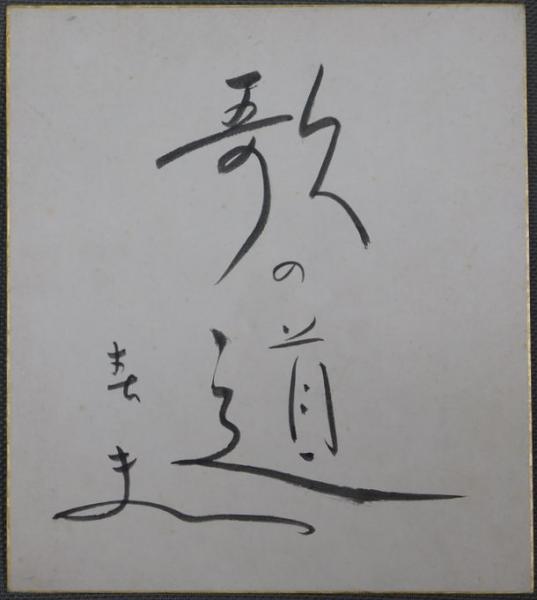 歌の道